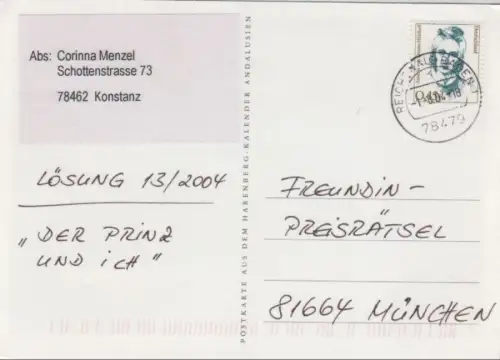 Abs: Corinna Menzel
Schottenstrasse 73
78462 Konstanz
LÖSUNG 13/2004
„DER PRINZ
UND ICH"
POSTKARTE AUS DEM HARENBERG-KALENDER ANDALUSIEN
78479
FREUNDIN-
PREISRÄTSEL
81664 MÜNCHEN